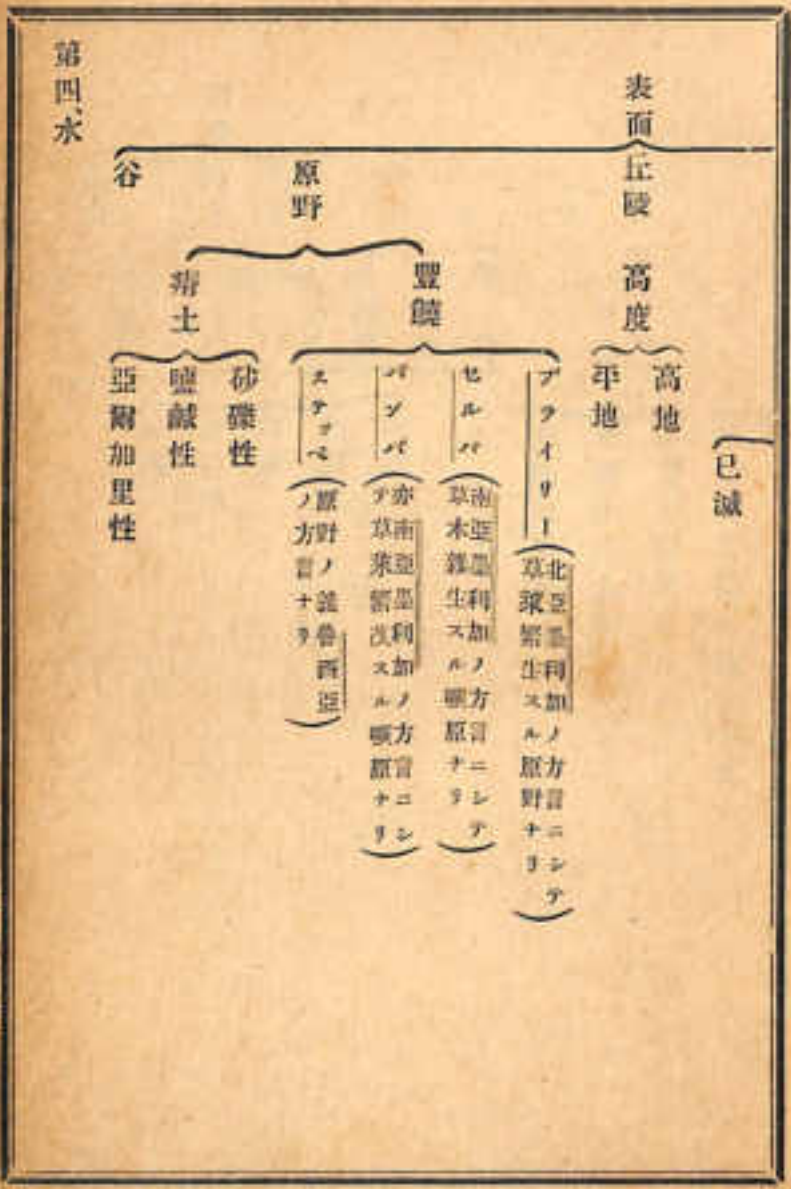 已滅
表面
丘陵
高度
高地
平地
原野
豐饒
プライリー
(北亞墨利加ノ方言ニシテ
草萊繁生スル原野ナリ)
セルバ
(南亞墨利加ノ方言ニシテ
草木雜生スル曠原ナリ)
パンパ
(亦南亞墨利加ノ方言ニシ
テ草萊繁茂スル曠原ナリ)
ステッペ
(原野ノ義魯西亞
ノ方言ナリ)
瘠土
砂礫性
鹽鹹性
亞爾加里性
谷
第四、水